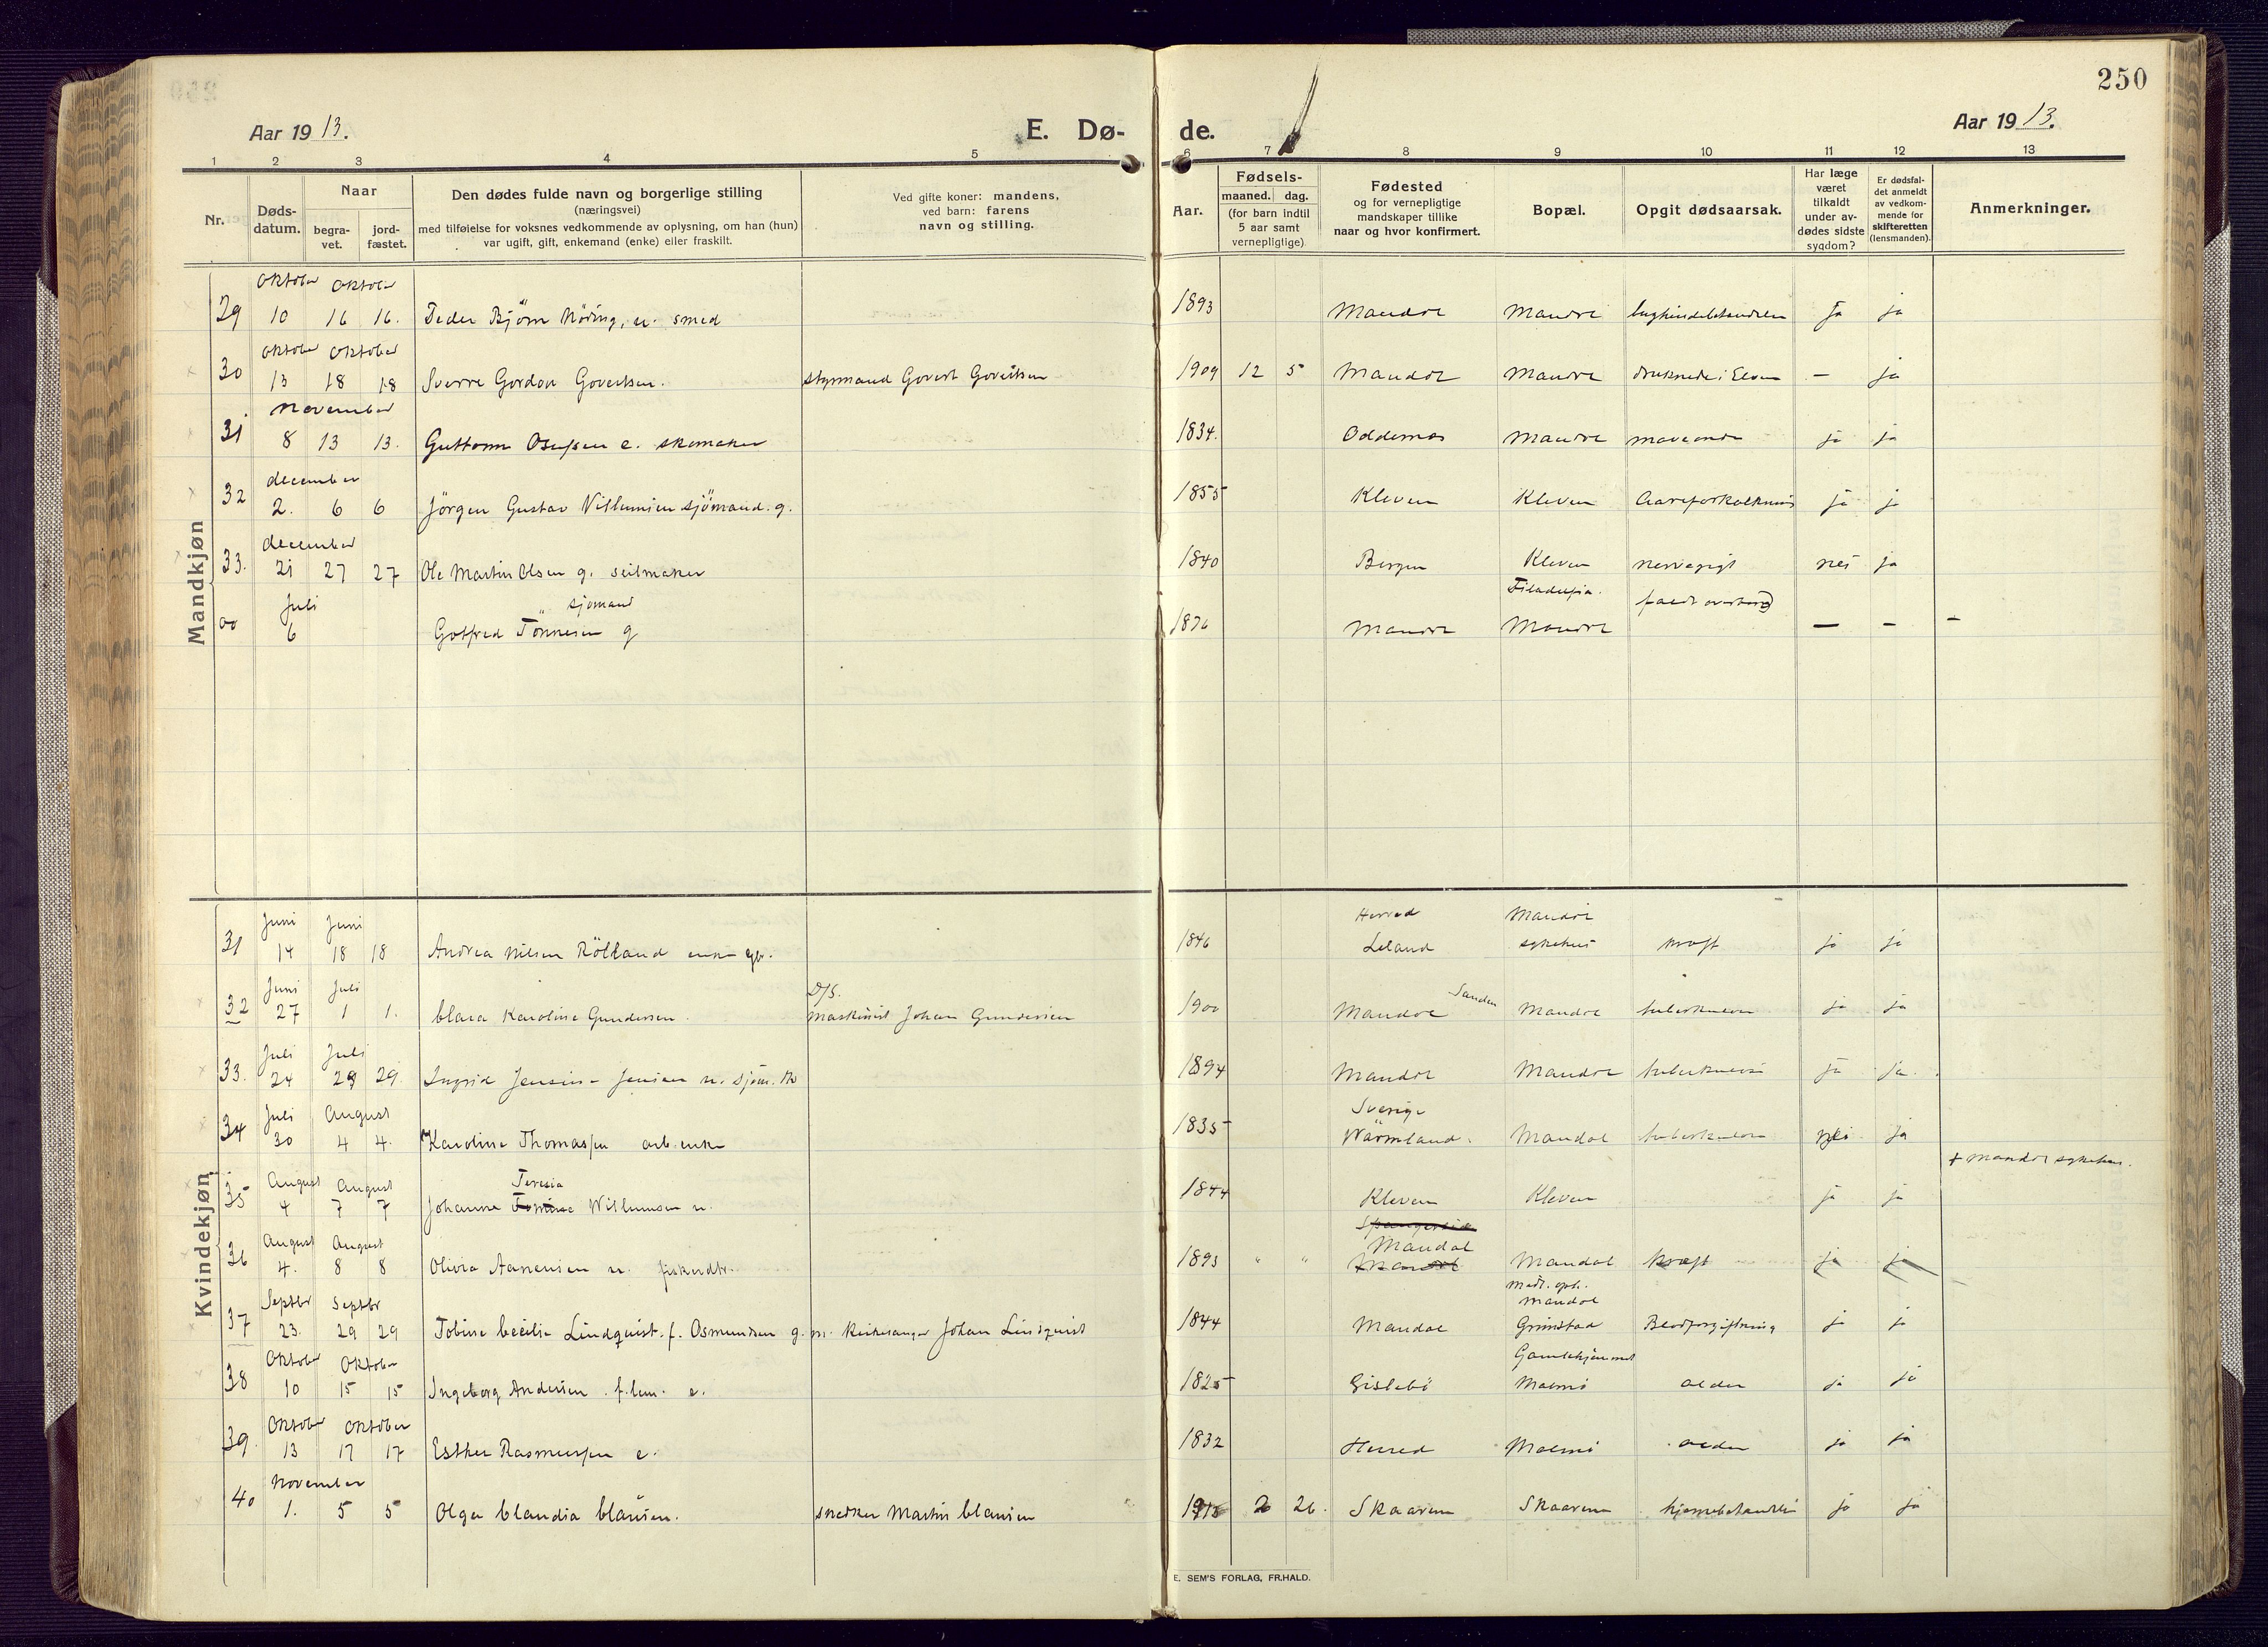 250
Aar 1913.
E. Dø-
de.
Aar 1913.
1 2 3 4 5 6 7 8 9 10 11 12 13
Nr.
Døds-
datum.
Naar
begra-
vet.
jord-
fæstet.
Den dødes fulde navn og borgerlige stilling
(næringsvei)
med tilføielse for voksnes vedkommende av oplysning, om han (hun)
var ugift, gift, enkemand (enke) eller fraskilt.
Ved gifte koner: mandens,
ved barn: farens
navn og stilling.
Aar.
Fødsels-
maaned. dag.
(for barn indtil
5 aar samt
vernepligtige)
Fødested
og for vernepligtige
mandskaper tillike
naar og hvor konfirmert.
Bopæl.
Opgit dødsaarsak.
Har læge
været
tilkaldt
under av-
dødes sidste
sygdom?
Er dødsfal-
det anmeldt
av vedkom-
mende for
skifteretten
(lensmanden).
Anmerkninger.
Mandkjøn
oktober oktober
29 10 16 16. Peder Bjørn Nöring, u. smed 1893 Mandal Mandal ja ja
oktober oktober
30 13 18 18 Sverre Gordon Govertsen. styrmand Govert Govertsen 1909 12 5 Mandal Mandal druknede i Elven — ja
november
31 8 13 13. Guttorm Osufsen e. skomaker 1834. Oddernes Mandal maveonde ja ja
december
32 2. 6 6 Jörgen Gustav Villumsen sjömand. g. 1855 Kleven Kleven Aareforkalkning ja ja
december
33. 21 27 27 Ole Martin Olsen g. seilmaker 1840 Bergen Kleven nervegigt nei ja
Juli sjømand Filadelfia. faldt overbord
00 6 Gotfred Tönnesen g 1876 Mandal Mandal — - -
Kvindekjøn
Juni Juni Herred Mandal
31 14 18 18 Andrea Nilsen Röllaand enke 1846 Leland sykehus kræft ja ja
Juni Juli D/S. Sanden
32 27 1 1. Clara Karoline Gundersen. maskinist Johan Gundersen 1900 Mandal Mandal tuberkulose ja ja
Juli Juli
33. 24 29 29. Ingrid Jensine Jensen u. sjöm. 1894 Mandal Mandal tuberkulose ja ja.
Juli August Sverige
34 30 4 4. Karoline Thomassen arb. enke 1835 Wärmland. Mandal tuberkulose nei ja
+ Mandal sykehus.
August August Teresia
35 4 7 7 Johanne Tomine Willumsen u. 1844 Kleven Kleven ja ja
August August Spangereid
Mandal
36 4. 8 8 Olivia Aanensen u. fiskerdtr. 1893 " " Mandal Mandal kræft ja ja
Septbr Septbr midl. oph.
Mandal
37 23. 29 29 Tobine Cecilie Lindquist. f. Osmundsen g. m. Kirkesanger Johan Lindquist 1844 Mandal Grimstad Blodforgiftning ja ja
Oktober Oktober Gamlehjemmet
38 10 15 15 Ingeborg Andersen . f. lem. e. 1825 Gislebö Malmö alder ja ja
Oktober Oktober
39. 13 17 17 Esther Rasmussen e. 1832 Herred Malmö alder ja ja
November
40 1. 5 5 Olga Claudia Clausen. snedker Martin Clausen 1913 2 26. Skaaren Skaaren hjernebetændelse ja ja
E. SEM'S FORLAG, FR.HALD.